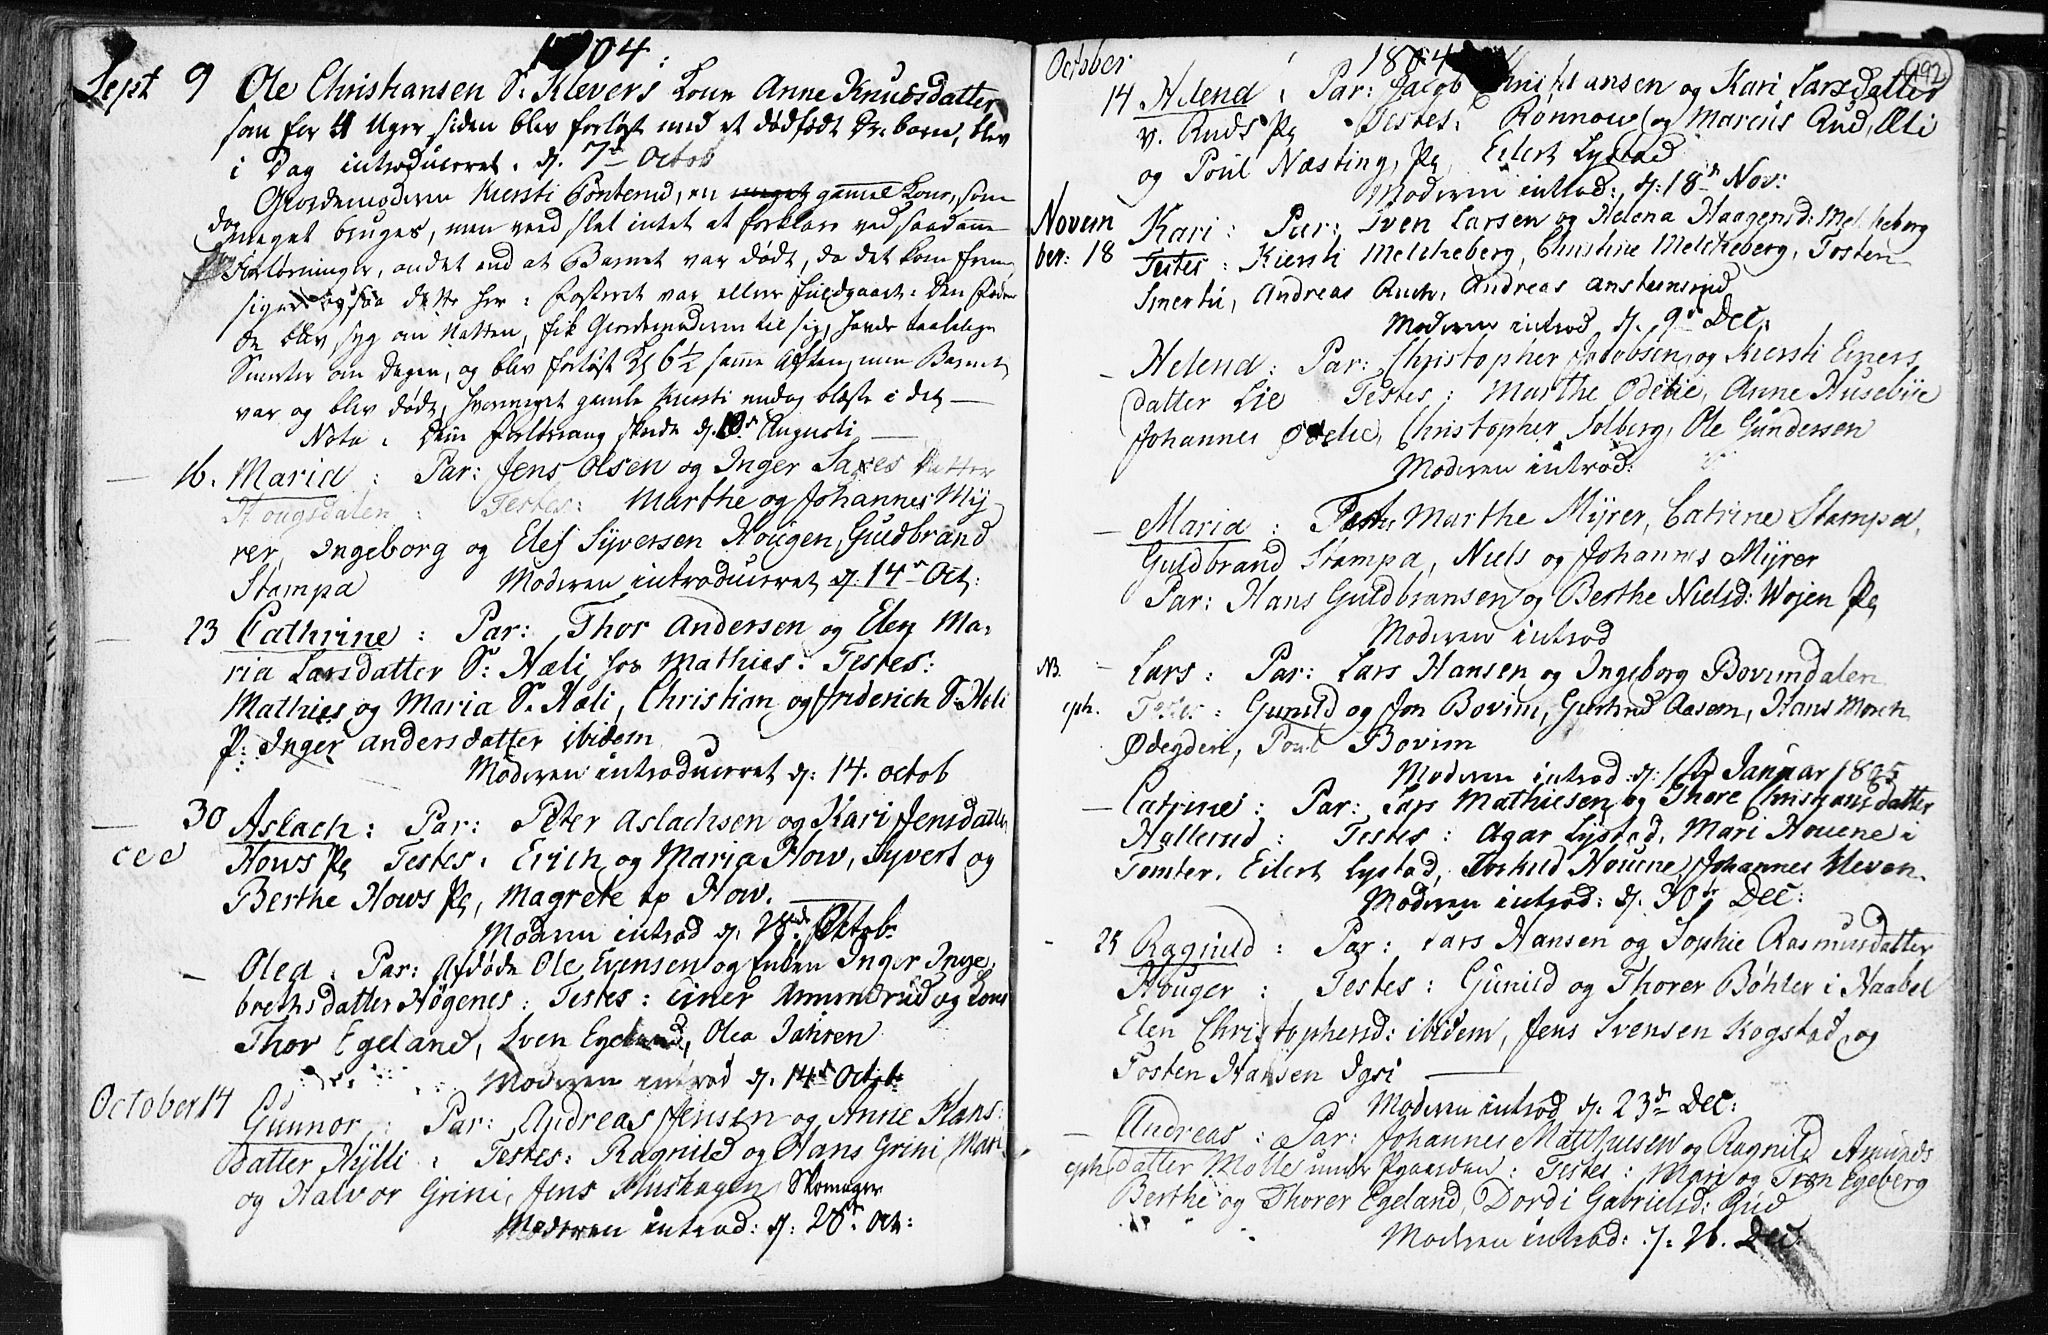 1804:
Sept 9 Ole Christiansen S: Klevers Kone Anne Knudsdatter
som for 4 Uger siden blev forløst med et dødfødt Dr: barn, blev
i Dag introduceret. d. 7de Octob
Giordemoderen Kiersti Tonterud, en meget gamel Kone, som
dog meget bruges, men veed slet intet at forklare ved saadanne
Forløsninger, andet end at Barnet var dødt, da det kom frem,
siger og saa dette her: Fosteret var ellers fuldgaaet:
de blev syg om Natten, fik Giordemoderen til sig, havde taalelige
Smerter om Dagen, og blev forløst Kl 6½ samme Aften, men Barnet
var og blev dødt, hvormeget gamle Kiersti endog blæste i det —
Nota: Denne Forløsning skede d. Augusti
— 16. Maria: Par: Jens Olsen og Inger Saxes datter
Hougsdalen: Testes: Marthe og Johannes Mÿ-
rer, Ingeborg og Elef Syversen Hougen, Gudbrand
Stampa Moderen introduceret d. 14de Oct:
— 23 Cathrine: Par: Thor Andersen og Elen Ma-
ria Larsdatter S: Hæli hos Mathies: Testes:
Mathies og Maria S. Hæli, Christian og Friderich S. Heli
P: Inger Andersdatter ibidem
Moderen introduceret d: 14. octob
— 30 Aslach: Par: Peter Aslachsen og Kari Jensdatter
Hows Pg Testes: Erich og Maria How, Syvert og
Berthe Hows Pg, Magrete How.
Moderen introd d. 28de Oktob:
— Olea: Par: Afdøde Ole Evensen og Enken Inger Inge-
brethsdatter Høgenes: Testes: Einer Amundrud og Kone
Thor Egeland, Sven Egeland, Olea Jahren
Moderen introd d. 14de Octb:
October 14 Gunnor: Par: Andreas Jensen og Anne Hans-
datter Hylli: Testes: Ragnild og Hans Grini, Mari
og Halvor Grini, Jens Skomager
Moderen introd: d: 28de Oct:
October 1804 192
14 Helena: Par: Jacob Christiansen og Kari Larsdatter
v. Ruds Pg Testes: Rønnow og Marcus Rud, Oli
og Poul Næsting, Pg Eilert Lystad
Moderen introd: d: 18de Nov:
Novem
ber: 18 Kari: Par: Sven Larsen og Helena Haagensd: Melcheberg
Testes: Kiersti Melcheberg, Christine Melcheberg, Tosten
Smertu, Andreas Ruch, Andreas Anstensrud
Moderen introd d. 9de Dec:
— Helena: Par: Christopher Jacobsen og Kiersti Einers
datter Lie Testes: Marthe Ødelie, Anne Husebÿe
Johannes Ødelie, Christopher Solberg, Ole Gundersen
Moderen introd:
— Maria: Test: Marthe Mÿrer, Catrine Stampa,
Guldbrand Stampa, Niels og Johannes Mÿrer
Par: Hans Guldbransen og Berthe Nielsd: Wøjen Pg
Moderen introd
NB. — Lars: Par: Lars Hansen og Ingeborg Bovimdalen
eph. Testes: Gunild og Jon Bovim, Gertrud Aasen, Hans Moseh
Ødegden, Poul Bovim
Moderen introd: d: Januar 1805
— Catrine: Par: Lars Mathiesen og Thore Christiansdatter
Hallerud: Testes: Agar Lystad, Mari Houene i
Tomter, Eilert Lystad, Torkild Houene, Johannes Kleven
Moderen introd: d. 30de Dec:
— 25 Ragnild: Par: Lars Hansen og Sophie Rasmusdatter
Houger: Testes: Gunild og Thorer Bøhler i Haabel
Elen Christophersd: ibidem, Jens Svensen Kogstad og
Tosten Hansen Igsi
Moderen introd d. 23de Dec:
— Andreas: Par: Johannes Matthiesen og Ragnild Amunds
eph datter Molles under Pgaarden: Testes: Mari og Tron Egeberg
Berthe og Thorer Egeland, Dordi Gabrielsd: Gud
Moderen introd: d: 26. Dec: